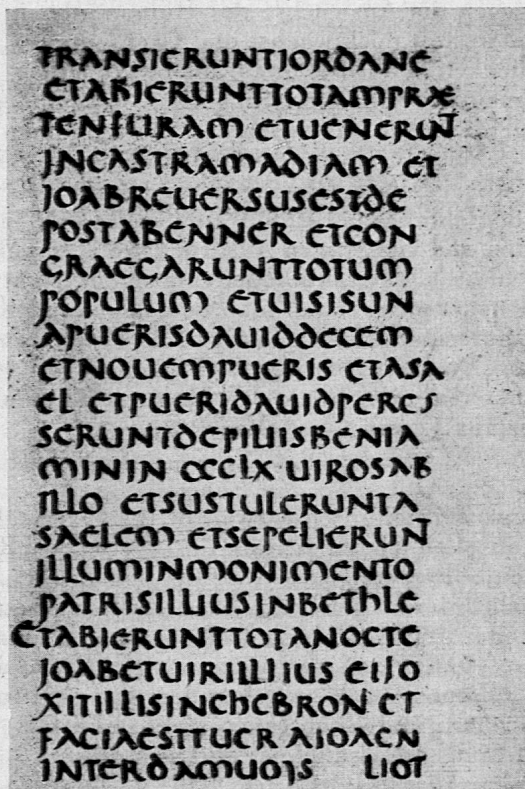 TRANSIERUNTIORDANE
ETABIERUNTTOTAMPRAE
TENSURAM ETUENERUNT
INCASTRAMADIAM ET
IOABREUERSUSESTDE
POSTABENNER ETCON
GRAEGARUNTTOTUM
POPULUM ETUISISUN
APUERISDAUIDDECEM
ETNOUEMPUERIS ETASA
EL ETPUERIDAUIDPERCS
SERUNTDEPILIISBENIA
MININ CCCLX UIROSAB
ILLO ETSUSTULERUNTA
SAELEM ETSEPELIERUNT
ILLUMINMONIMENTO
PATRISILLIUSINBETHLE
ETABIERUNTTOTANOCTE
IOABETUIRIILLIUS EIIO
XITILLISINCHEBRON ET
FACIAESTTUER AIOAEN
INTERDAMUOIS LIOT